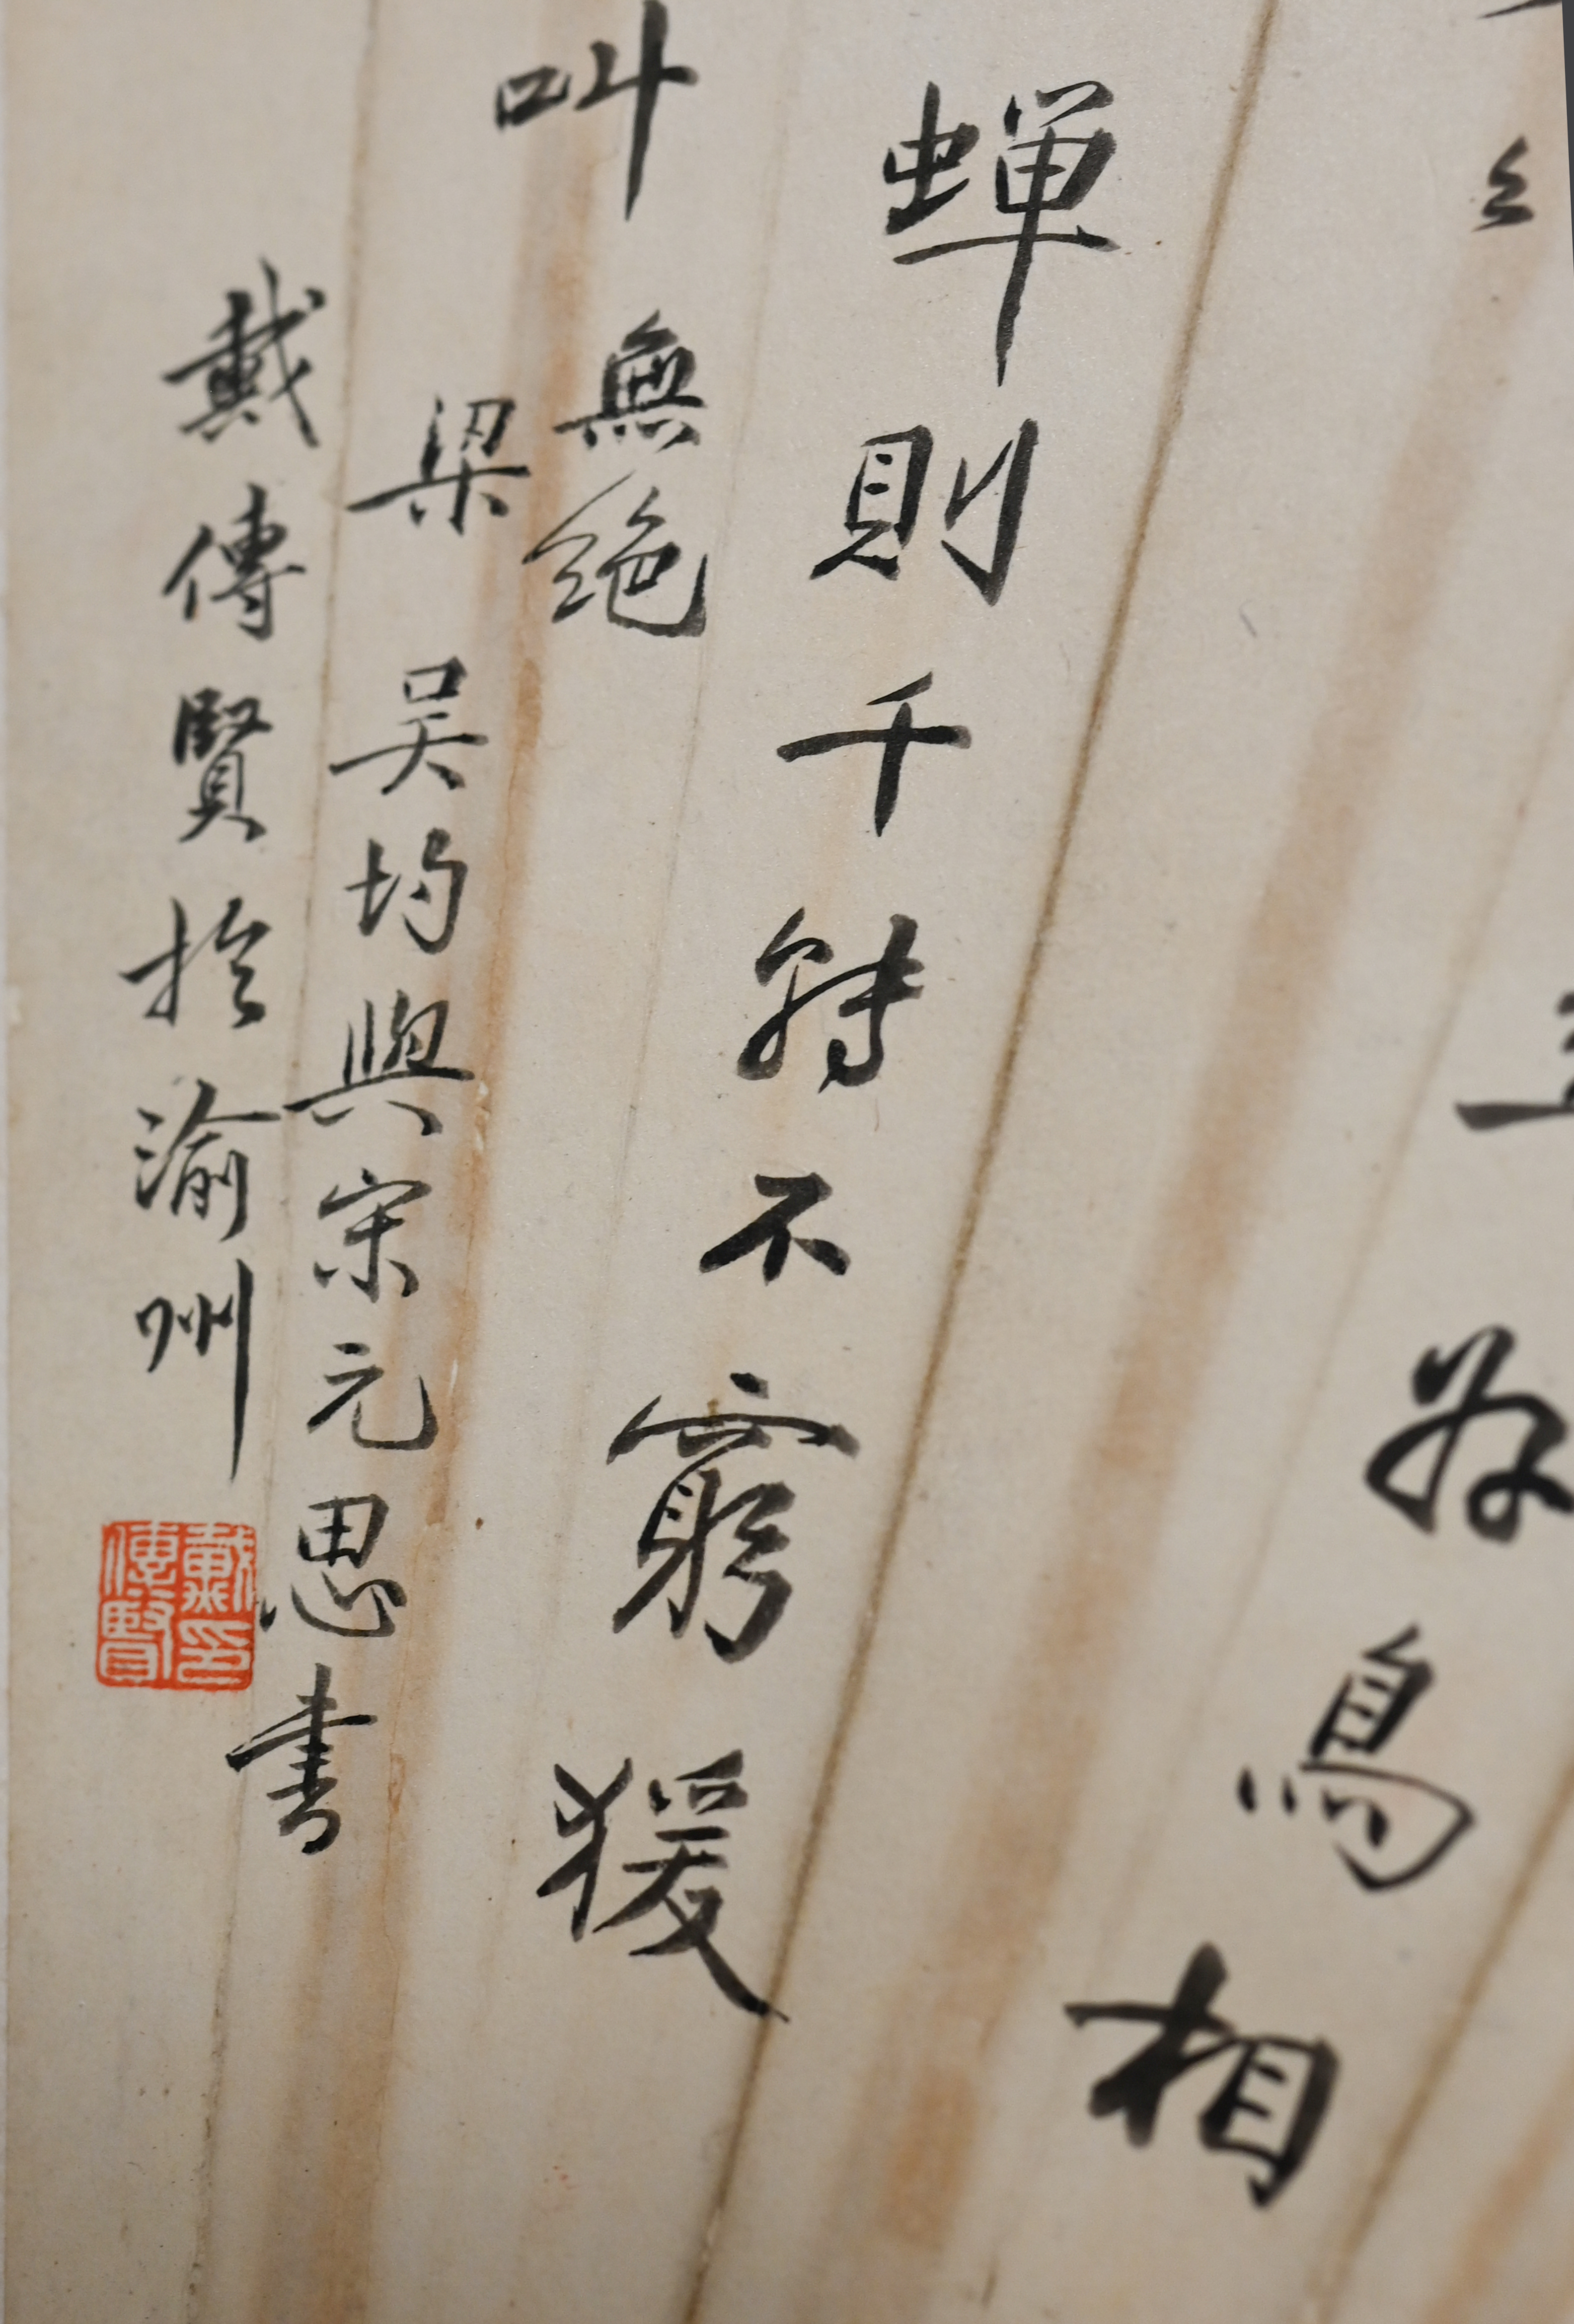 好鳥相
蟬則千轉不窮猨
叫無絕
梁吴均與宋元思書
戴傳賢於渝州
戴傳賢印